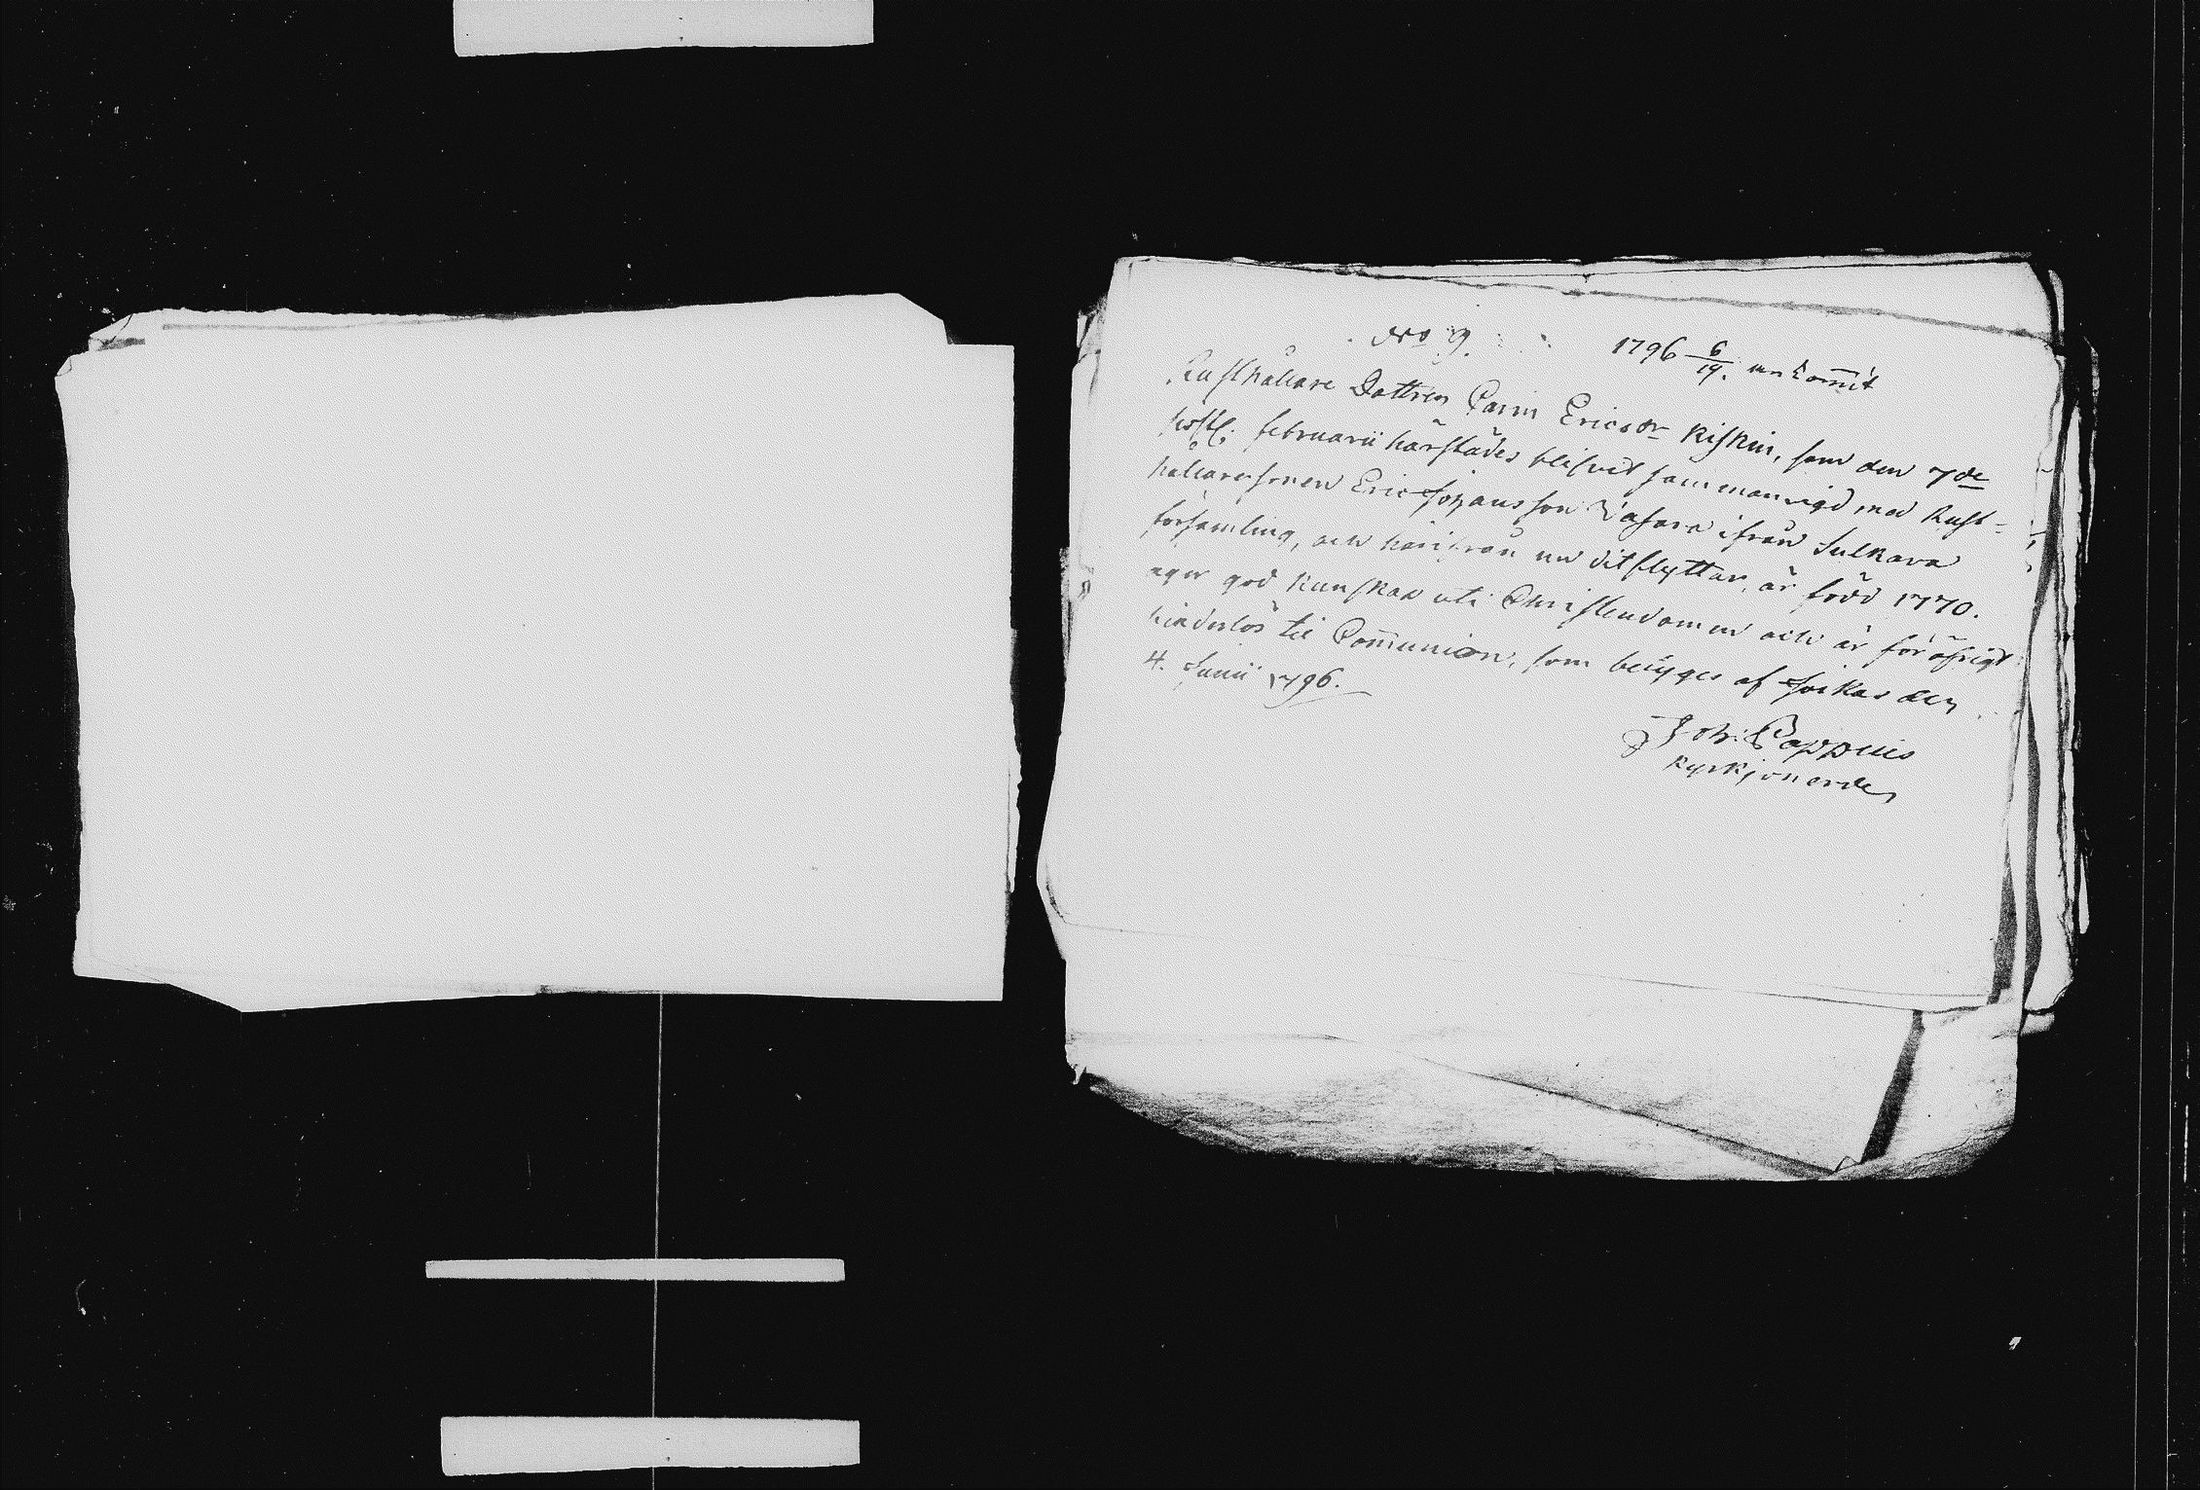 No 9. 1796 6/19. ankom̄it
Rusthållare Dottren Carin Ericsdr Riskin, som den 7de
sistl. februarii härstädes blifvit sammanvigd med Rust-
hållaresonen Eric Johansson Vasara ifrån Sulkava
församling, och härifrån nu ditflyttar, är född 1770.
äger god kunskap uti Christendomen och är för öfrigt
hinderlös til Com̄union, som betyges af Joikas den
4. Junii 1796.
Joh: Poppius
Kyrkjoherde